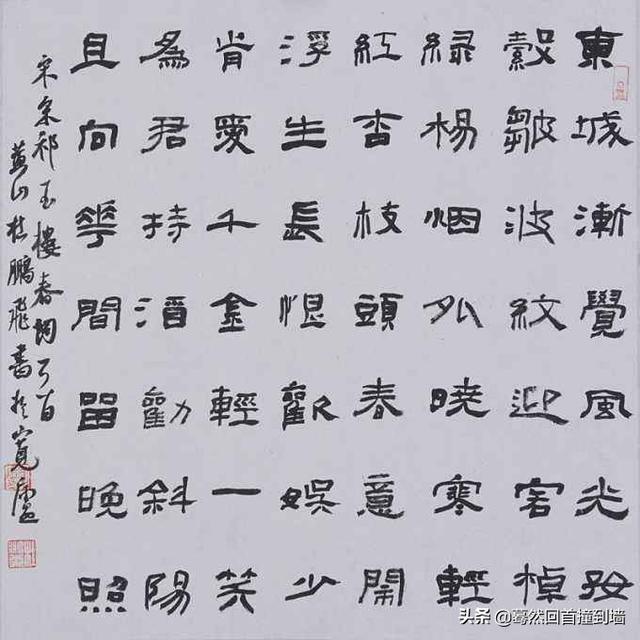 東城漸覺風光好
縠皺波紋迎客棹
綠楊烟外曉寒輕
紅杏枝頭春意鬧
浮生長恨歡娛少
肯愛千金輕一笑
為君持酒勸斜陽
且向華間留晚照
宋宋祁玉樓春詞首
黃山杜鵬飛書於寬廬
头条 @蓦然回首撞到墙